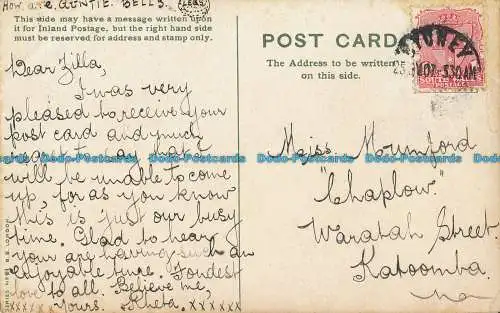 How are AUNTIE. BELLS.
This side may have a message written upon
it for Inland Postage, but the right hand side
must be reserved for address and stamp only.
Dear Zilla,
I was very
pleased to receive your
post card and much
regret to say that I
will be unable to come
up, for as you know
this is just our busy
time. Glad to hear
your are having such an
enjoyable time. Fondest
love to all. Believe me,
Yours. Rheta. xxxxxx
POST CARD
The Address to be written
on this side.
SYDNEY
5.30AM
POSTAGE
Miss Mumford
"Chaplow."
Waratah Street
Katoomba.